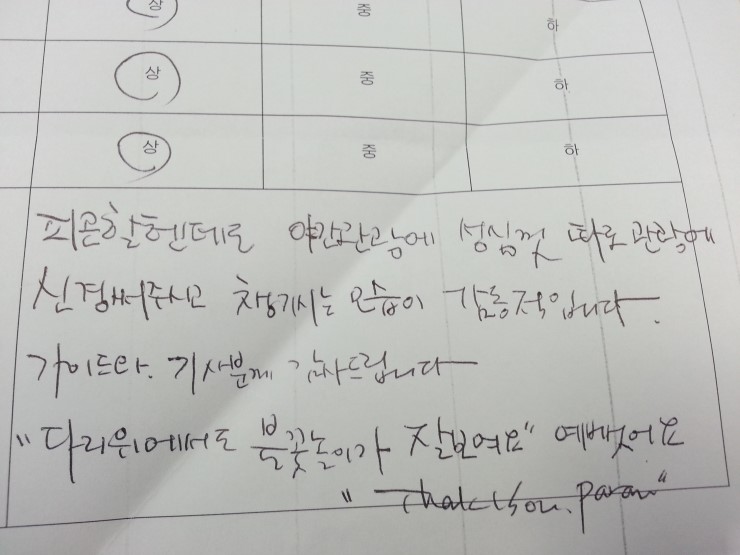 상 중 하
상 중 하
상 중 하
피곤할헨데로 야간관광에 성심껏 따로 관광에
신경써주시고 챙기시는 모습이 감동적입니다.
가이드와. 기사분께 감사드립니다
"다리위에서도 불꽃놀이가 잘보여요" 예뻤어요
"